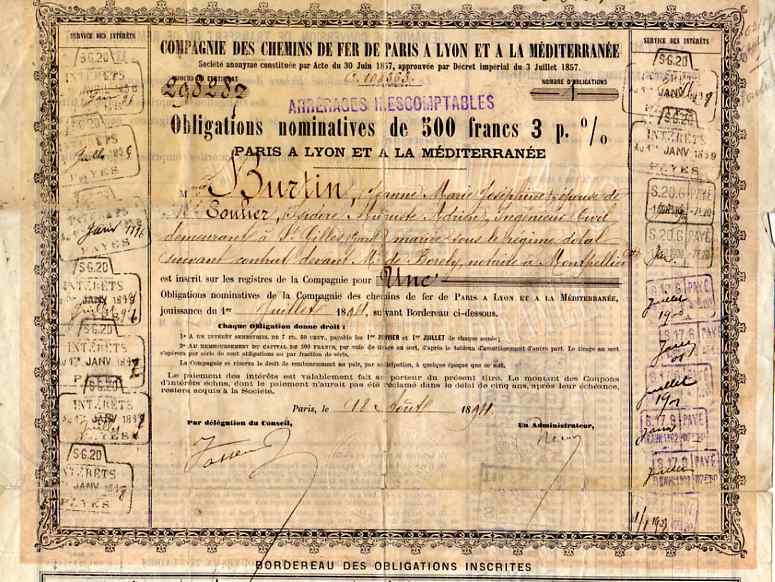 SERVICE DES INTÉRÊTS
SERVICE DES INTÉRÊTS
COMPAGNIE DES CHEMINS DE FER DE PARIS A LYON ET A LA MÉDITERRANÉE
Société anonyme constituée par Acte du 30 Juin 1857, approuvée par Décret impérial du 3 Juillet 1857.
298287
NOMBRE D'OBLIGATIONS
1
ARRÉRAGES INESCOMPTABLES
Obligations nominatives de 500 francs 3 p. %
PARIS A LYON ET A LA MÉDITERRANÉE
M Burtin, Jeanne Marie Joséphine épouse de
Mr Isidore Auguste Ingénieur Civil
demeurant à St Gilles mariée sous le régime dotal
suivant contrat devant Me de notaire à Montpellier
est inscrit sur les registres de la Compagnie pour Une
Obligations nominatives de la Compagnie des chemins de fer de PARIS A LYON ET A LA MÉDITERRANÉE,
jouissance du 1er Juillet 18 , suivant Bordereau ci-dessous.
Chaque Obligation donne droit :
1° A UN INTÉRÊT SEMESTRIEL DE 7 FR. 50 CENT, payable les 1er JANVIER et 1er JUILLET de chaque année;
2° AU REMBOURSEMENT DU CAPITAL DE 500 FRANCS, par voie de tirage au sort, d'après le tableau d'amortissement d'autre part. Le tirage au sort
s'opérera par série de cent obligations ou par fraction de série.
La Compagnie se réserve le droit de remboursement au pair, par anticipation, à quelque époque que ce soit.
Le paiement des intérêts est valablement fait au porteur du présent titre. Le montant des Coupons
d'intérêts échus, dont le paiement n'aurait pas été réclamé dans le délai de cinq ans, après leur échéance,
restera acquis à la Société.
Paris, le 18 Août 18
Par délégation du Conseil,
Un Administrateur,
BORDEREAU DES OBLIGATIONS INSCRITES
SG.20
INTÉRÊTS
PAYES
SG.20
INTÉRÊTS
JANV
SG.20
INTÉRÊTS
SG.20
INTÉRÊTS
JANV
PAYES
SG.20
INTÉRÊTS
JANV
INTÉRÊTS
JANV
PAYES
S.20.G PAYÉ
S.20.G PAYÉ
S.17.G PAYÉ
Juillet
1900
S.17.G PAYÉ
S.17.G PAYÉ
Juillet
S.17.G PAYÉ
S.17.G PAYÉ
Juillet